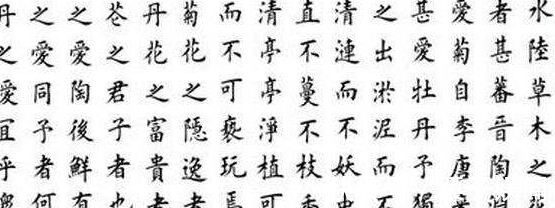 水陸草木之花
者甚蕃晉陶淵
愛菊自李唐
甚愛牡丹予獨
之出淤泥而不
清漣而不妖中
直不蔓不枝香
清亭亭淨植可
而不可褻玩焉
菊花之隱逸者
丹花之富貴者
芲之君子者也
之愛陶後鮮有
之愛同予者何
丹之愛宜乎